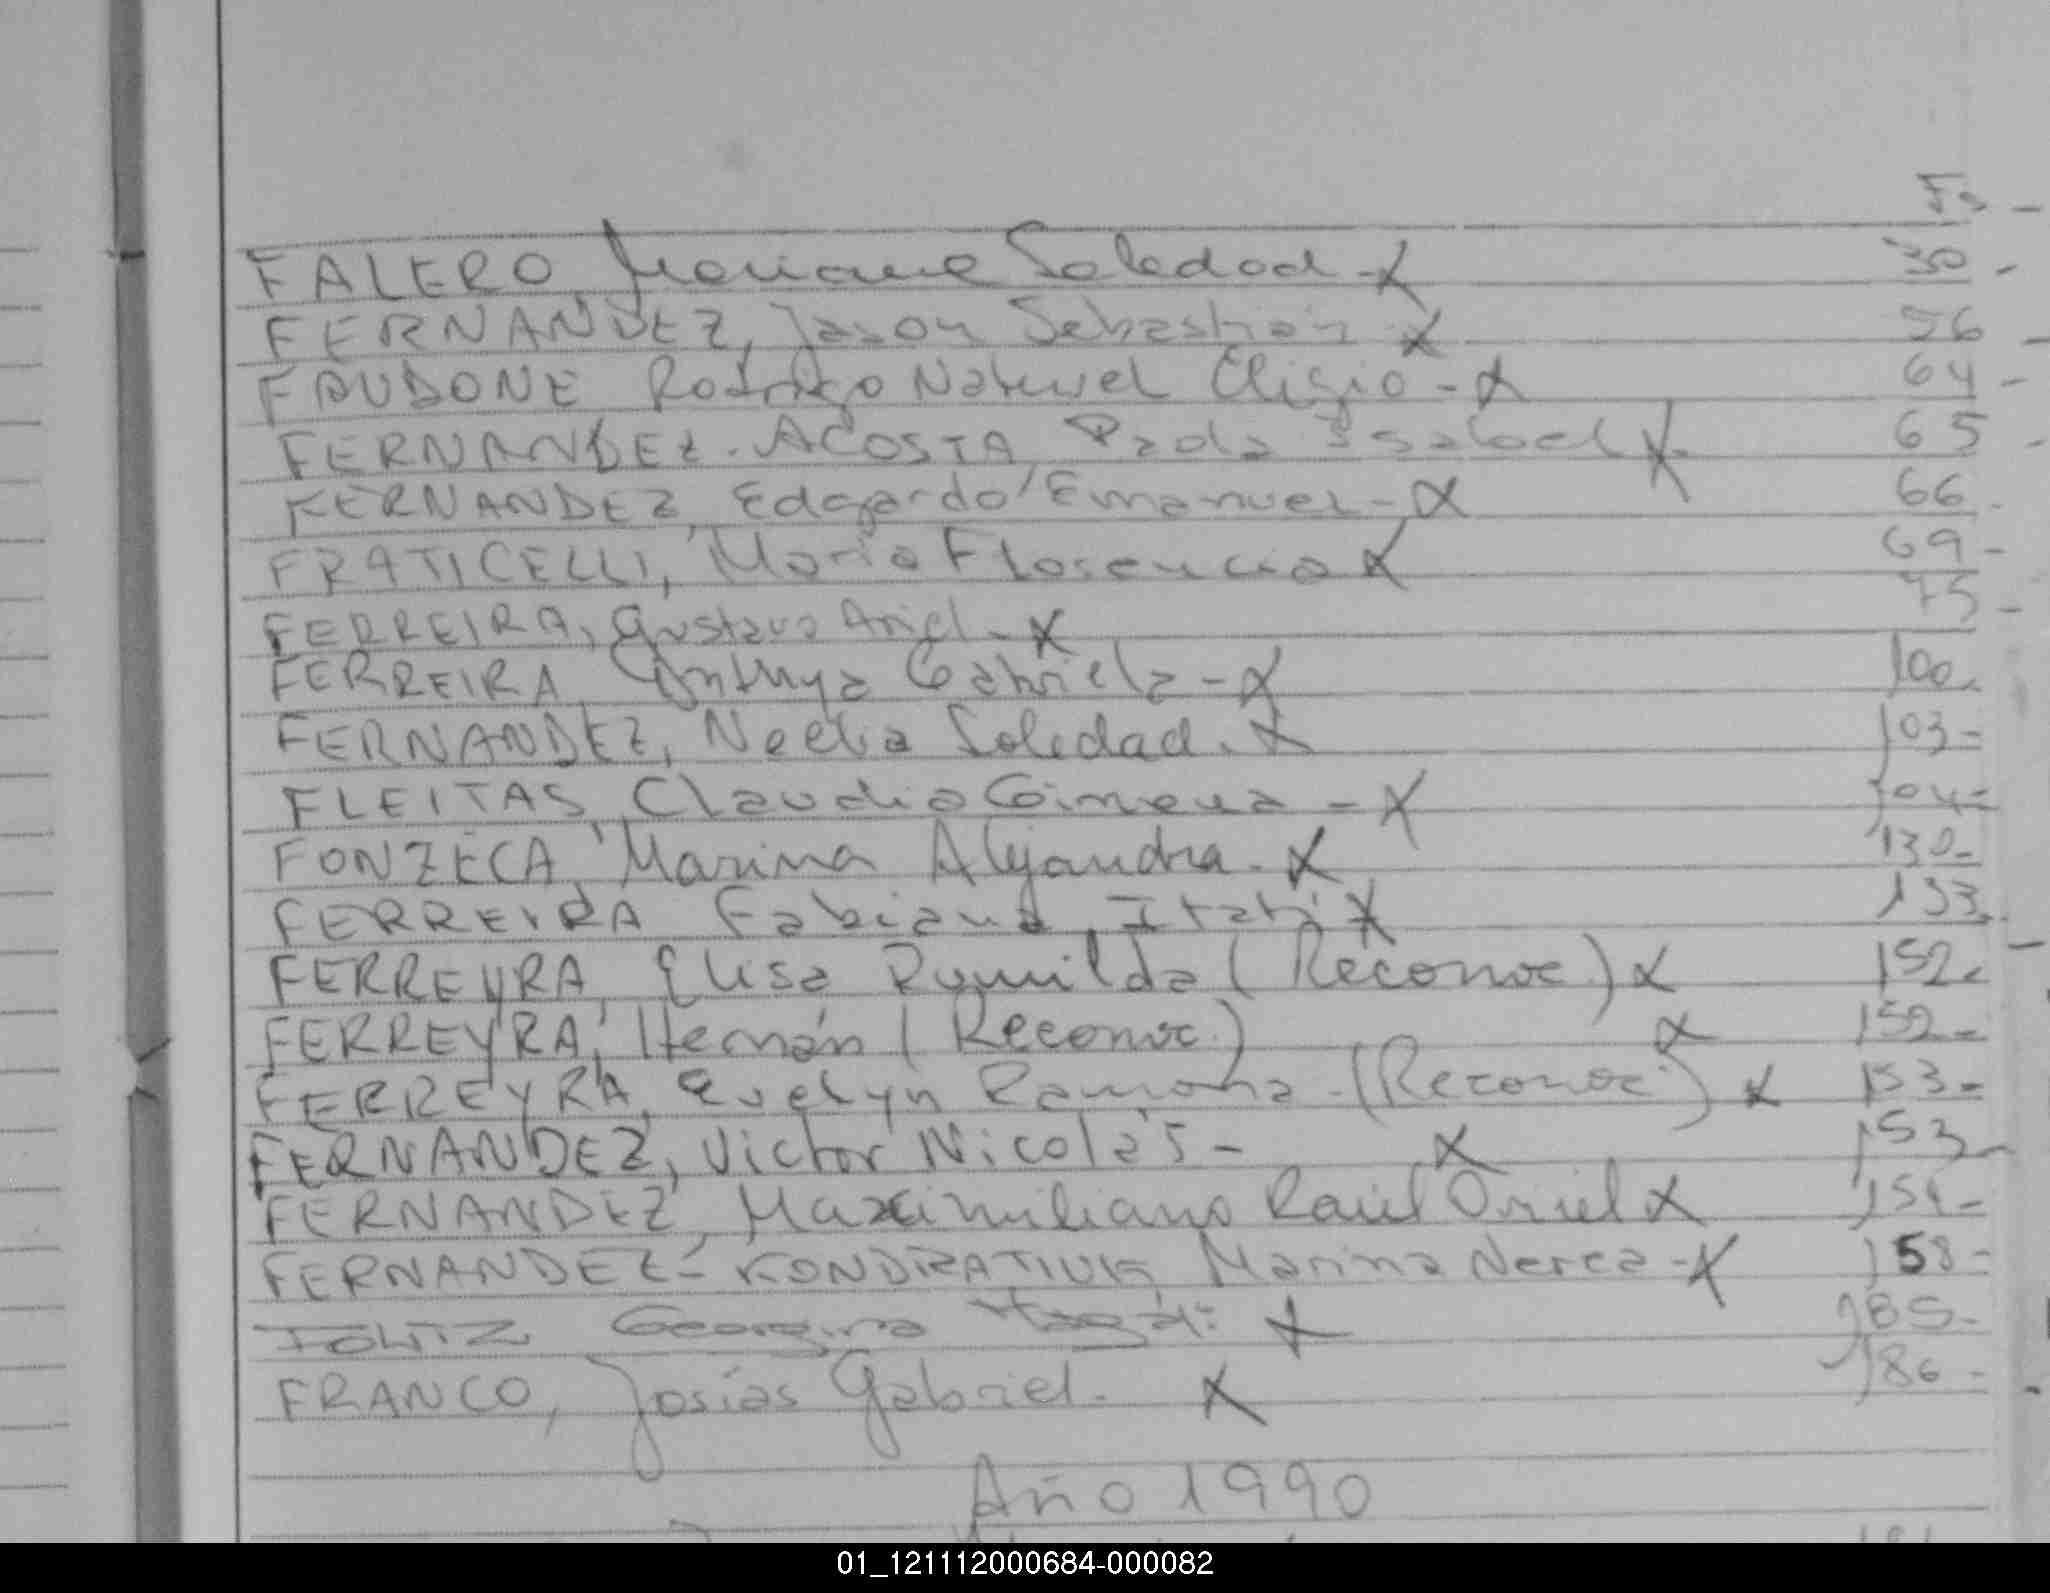 Fº -
FALERO, Mariana Soledad - X 30 -
FERNANDEZ, Jason Sebastián X 56
FAUDONE Rodrigo Natuel Eligio - X 64 -
FERNANDEZ - ACOSTA, Paola Isabel X 65 -
FERNANDEZ, Edgardo Emanuel - X 66 -
FRATICELLI, María Florencia X 69 -
FERREIRA, Gustavo Ariel - X 75 -
FERREIRA, Cynthya Gabriela - X 100 -
FERNANDEZ, Noelia Soledad - X 103 -
FLEITAS, Claudia Gimena - X 104 -
FONZECA, Marina Alejandra - X 130 -
FERREIRA Fabiana Itatí X 133 -
FERREYRA, Elisa Romilda (Reconoc.) X 152 -
FERREYRA, Hernán (Reconoc.) X 152 -
FERREYRA, Evelyn Ramona - (Reconoc.) X 153 -
FERNANDEZ, Victor Nicolás - X 153 -
FERNANDEZ, Maximiliano Raúl Oriel X 154 -
FERNANDEZ - KONDRATIUK, Marina Nerea - X 158 -
Georgina X 185 -
FRANCO, Josías Gabriel - X 186 -
Año 1990
01_121112000684-000082